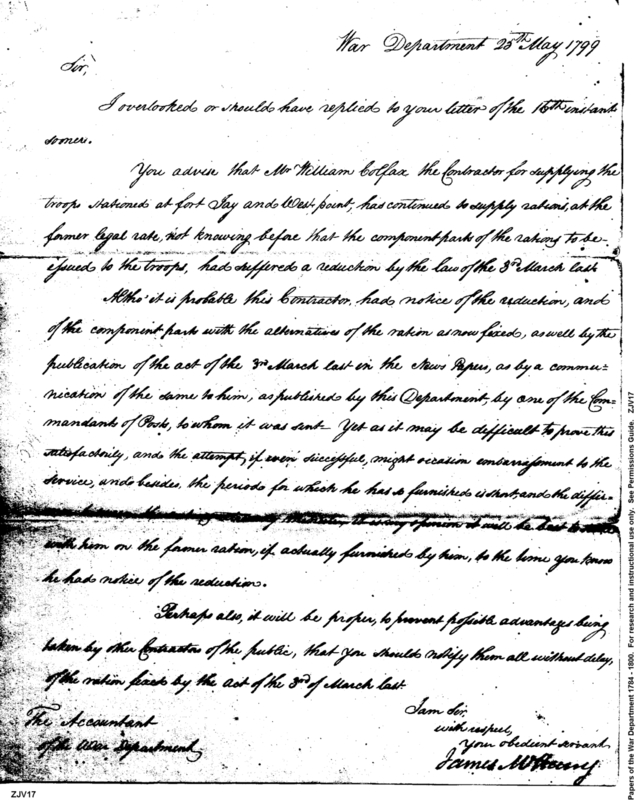 War Department 25th May 1799
Sir,
I overlooked or should have replied to your letter of the 16th instant
sooner.
You advise that Mr William Colfax the Contractor for supplying the
troops stationed at fort Jay and West point, has continued to supply rations, at the
former legal rate, not knowing before that the component parts of the rations to be
issued to the troops, had suffered a reduction by the law of the 3rd March last
Altho' it is probable this Contractor, had notice of the reduction, and
of the component parts with the alternatives of the ration as now fixed, as well by the
publication of the act of the 3rd March last in the News Papers, as by a commu=
nication of the same to him, as published by this Department, by one of the Com=
mandants of Posts, to whom it was sent – Yet as it may be difficult to prove this
satisfactorily, and the attempt, if even successful, might occasion embarrassment to the
service, and besides, the periods for which he has so furnished is short, and the differ=
it is my opinion it will be best to
with him on the former ration, if actually furnished by him, to the time you know
he had notice of the reduction.
Perhaps also, it will be proper, to prevent possible advantages being
taken by other Contractors of the public, that you should notify them all without delay,
of the ration fixed by the act of the 3rd of March last.
I am Sir,
with respect,
your obedient servant
James McHenry
The Accountant
of the War Department
ZJV17
Papers of the War Department 1784 - 1800. For research and instructional use only. See Permissions Guide. ZJV17